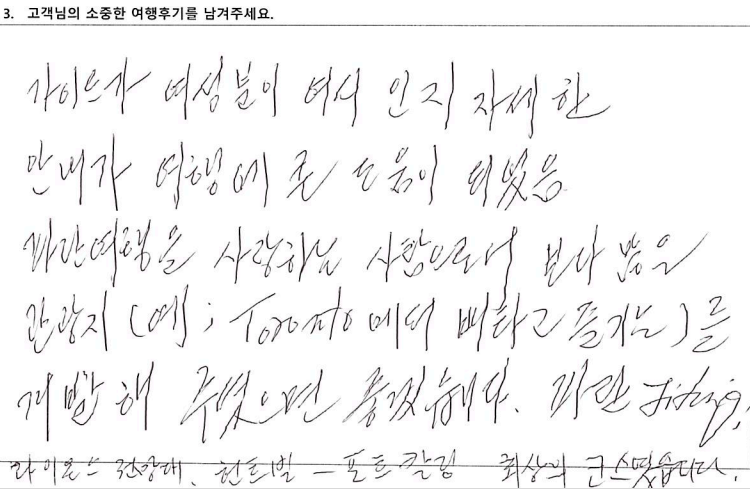 3. 고객님의 소중한 여행후기를 남겨주세요.
가이드가 여성분이 여서 인지 자세한
안내가 여행에 큰 도움이 되었음
파란여행을 사랑하는 사람으로서 보다 많은
관광지 (예; Toronto 에서 배타고 즐기는)를
개발해 주셨으면 좋겠습니다. 파란
라이온스 전망대, 헌트빌 - 포트칼링 최상의 코스였습니다.